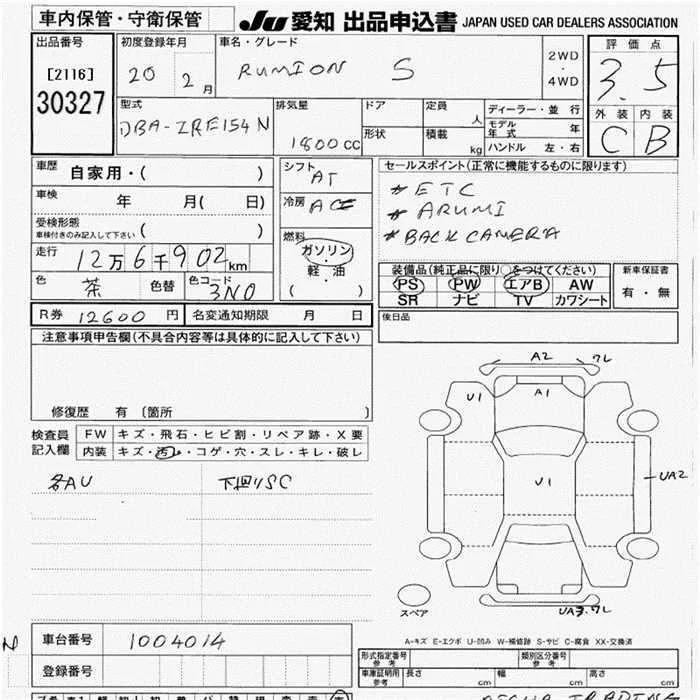 車内保管・守衛保管 JU 愛知 出品申込書 JAPAN USED CAR DEALERS ASSOCIATION
出品番号 初度登録年月 車名・グレード 評価点
[2116] 20 2月 RUMION S 2WD・4WD 3.5
30327
型式 排気量 ドア 定員 人 ディーラー・並行 外装 内装
DBA-ZRE154N 1800CC 形状 積載 kg モデル年式 年 C B
ハンドル 左・右
車歴 自家用・( ) シフト AT セールスポイント(正常に機能するものに限ります)
車検 年 月( 日) 冷房 ACE #ETC
受検形態 #ARUMI
車検付きのみ記入して下さい ( ) 燃料 #BACK CAMERA
走行 12万6千902km ガソリン
軽・油
( )
色 茶 色替 色コード 3N0 装備品(純正品に限り○をつけてください) 新車保証書
PS PW エアB AW 有・無
SR ナビ TV カワシート
R券 12600円 名変通知期限 月 日 後日品
注意事項申告欄(不具合内容等は具体的に記入して下さい)
修復歴 有 〔箇所 〕
検査員記入欄 FW キズ・飛石・ヒビ割・リペア跡・X要
内装 キズ・汚レ・コゲ・穴・スレ・キレ・破レ
各AU 下回リSC
A2 ワレ
U1 A1
U1 UA2
スペア UA3.ワレ
A-キズ E-エクボ U-凹み W-補修跡 S-サビ C-腐食 XX-交換済
N 車台番号 1004014
登録番号
型式指定番号 参考 類別区分番号 参考
車庫証明用 参考 長さ cm 幅 cm 高さ cm